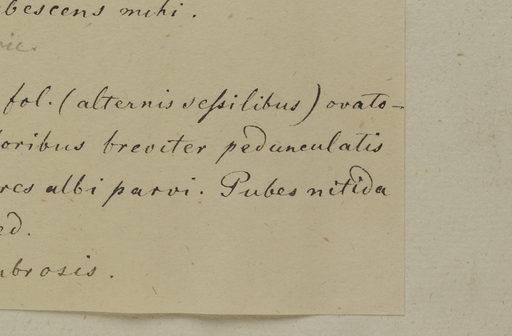 bescens mihi.
fol. (alternis sessilibus) ovato-
oribus breviter pedunculatis
res albi parvi. Pubes nitida
ed.
mbrosis.